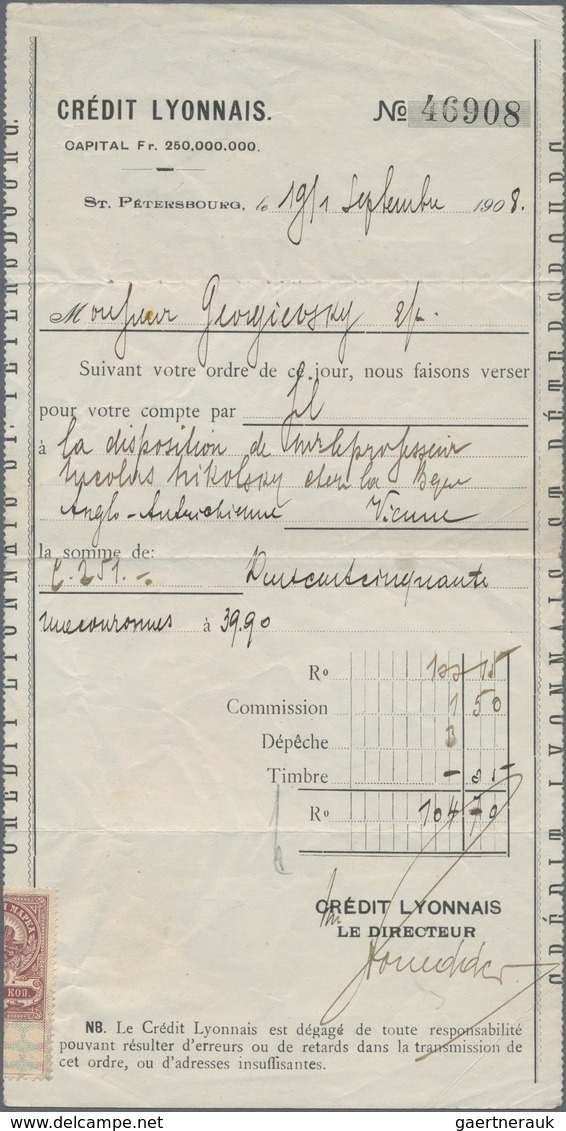 CRÉDIT LYONNAIS.
№ 46908
CAPITAL Fr. 250,000,000.
ST. PÉTERSBOURG, le 19/1 Septembre 1908.
Monsieur Georgievsky
Suivant votre ordre de ce jour, nous faisons verser
pour votre compte par fil
à la disposition de Mr le professeur
Nicolas Nikolsky chez la Bque
Anglo-Autrichienne Vienne
la somme de:
C. 251.- Deux cent cinquante
une couronnes à 39.90
Ro 100 15
Commission 1 50
Dépêche 3
Timbre - 05
Ro 104 70
CRÉDIT LYONNAIS
LE DIRECTEUR
МАРКА
КОП.
NB. Le Crédit Lyonnais est dégagé de toute responsabilité
pouvant résulter d'erreurs ou de retards dans la transmission de
cet ordre, ou d'adresses insuffisantes.
gaertnerauk